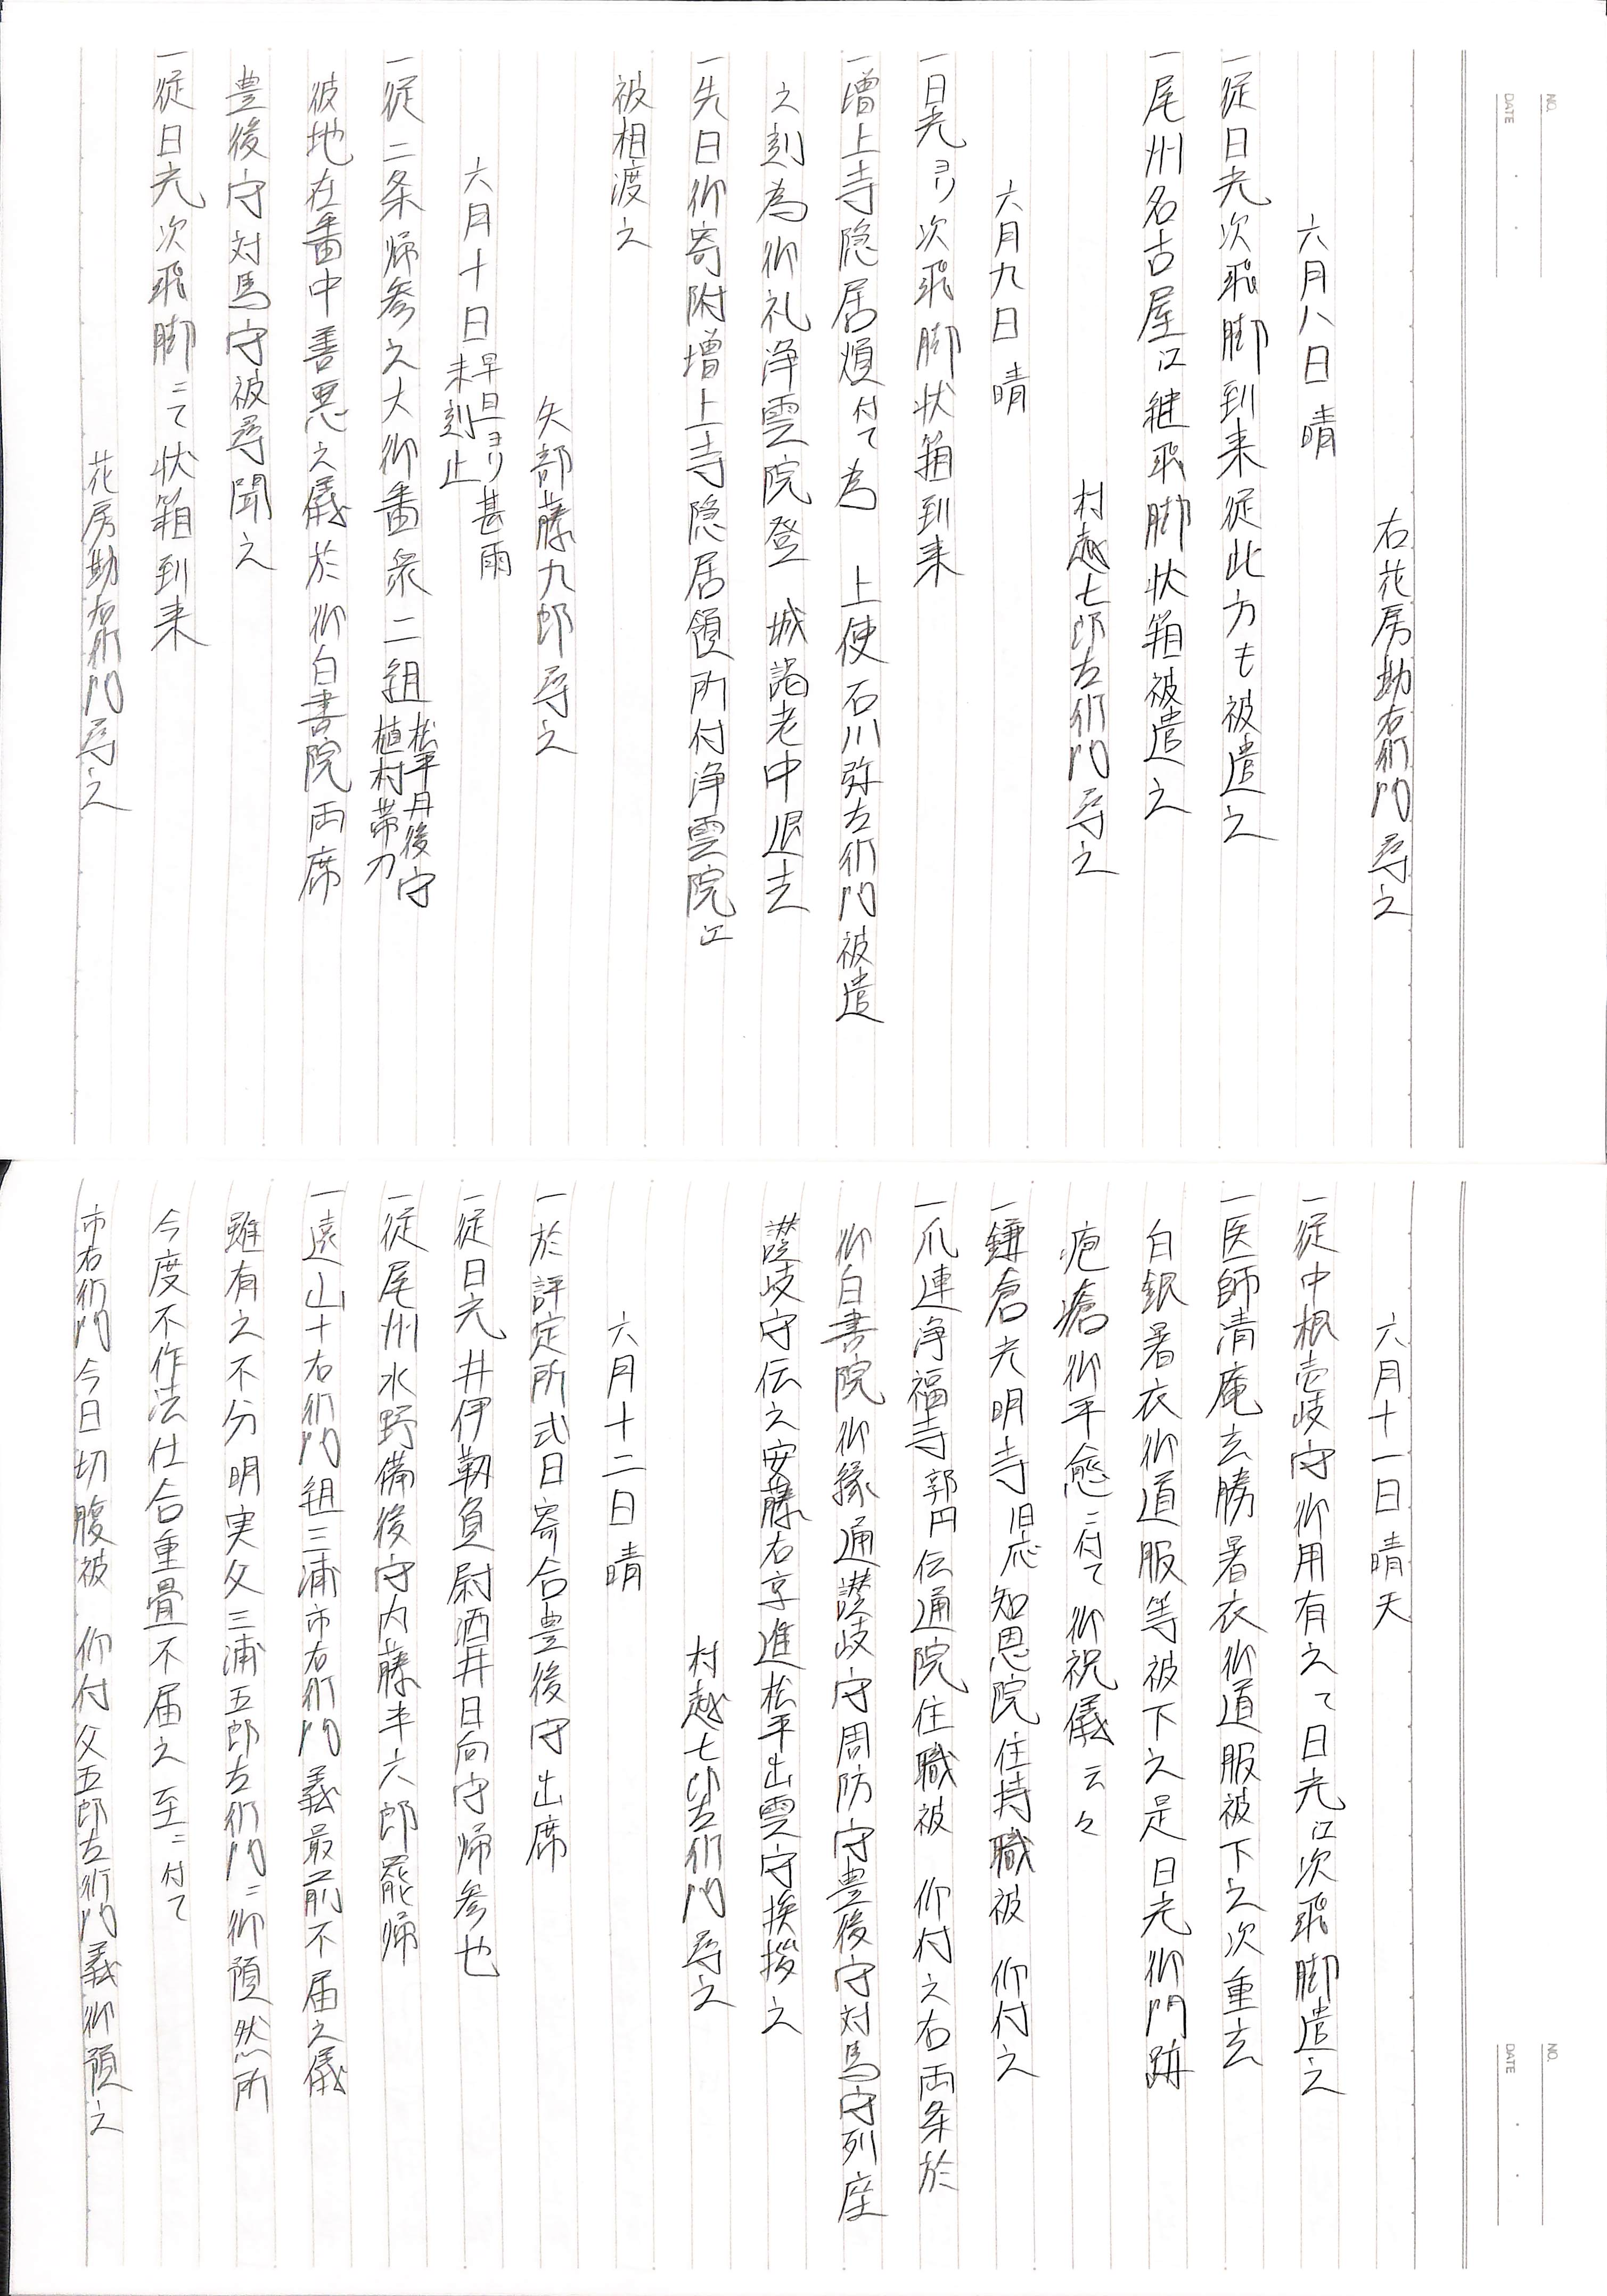 NO.
DATE
右花房勘右衛門尋之
六月八日 晴
一従日光次飛脚到来従此方も被遣之
一尾州名古屋江継飛脚状箱被遣之
村越七郎左衛門尋之
六月九日 晴
一日光ヨリ次飛脚状箱到来
一増上寺隠居煩付て為 上使石川弥左衛門被遣
之刻為御礼浄雲院登 城謁老中退去
一先日御寄附増上寺隠居領所付浄雲院江
被相渡之
矢部藤九郎尋之
六月十日 早旦ヨリ甚雨
未刻止
一従二条帰参之大御番衆二組 松平丹後守
植村帯刀
彼地在番中善悪之儀於御白書院両席
豊後守対馬守被尋聞之
一従日光次飛脚ニて状箱到来
花房勘右衛門尋之
NO.
DATE
六月十一日 晴天
一従中根壱岐守御用有之て日光江次飛脚遣之
一医師清庵去勝暑衣御道服被下之次重玄
白銀暑衣御道服等被下之是日光御門跡
疱瘡御平癒ニ付て御祝儀云々
一鎌倉光明寺旧応知恩院住持職被 仰付之
一爪連浄福寺郭円伝通院住職被 仰付之右両条於
御白書院御縁通讃岐守周防守豊後守対馬守列座
讃岐守伝之安藤右京進松平出雲守挨拶之
村越七郎左衛門尋之
六月十二日 晴
一於評定所式日寄合豊後守出席
一従日光井伊靱負尉酒井日向守帰参也
一従尾州水野備後守内藤半六郎罷帰
一遠山十右衛門組三浦市右衛門義最前不届之儀
雖有之不分明実父三浦五郎左衛門ニ御預然所
今度不作法仕合重畳不届之至ニ付て
市右衛門今日切腹被 仰付父五郎左衛門義御預之